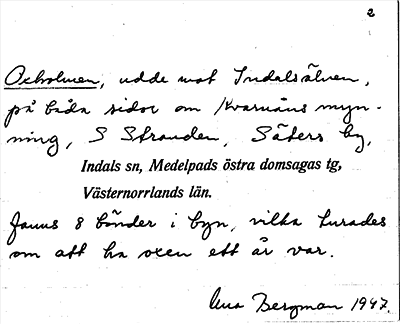 2
Oxholmen, udde mot Indalsälven,
på båda sidor om Kvarnåns myn-
ning, S Stranden, Säters by,
Indals sn, Medelpads östra domsagas tg,
Västernorrlands län.
Fanns 8 bönder i byn, vilka turades
om att ha oxen ett år var.
Bergman 1947.